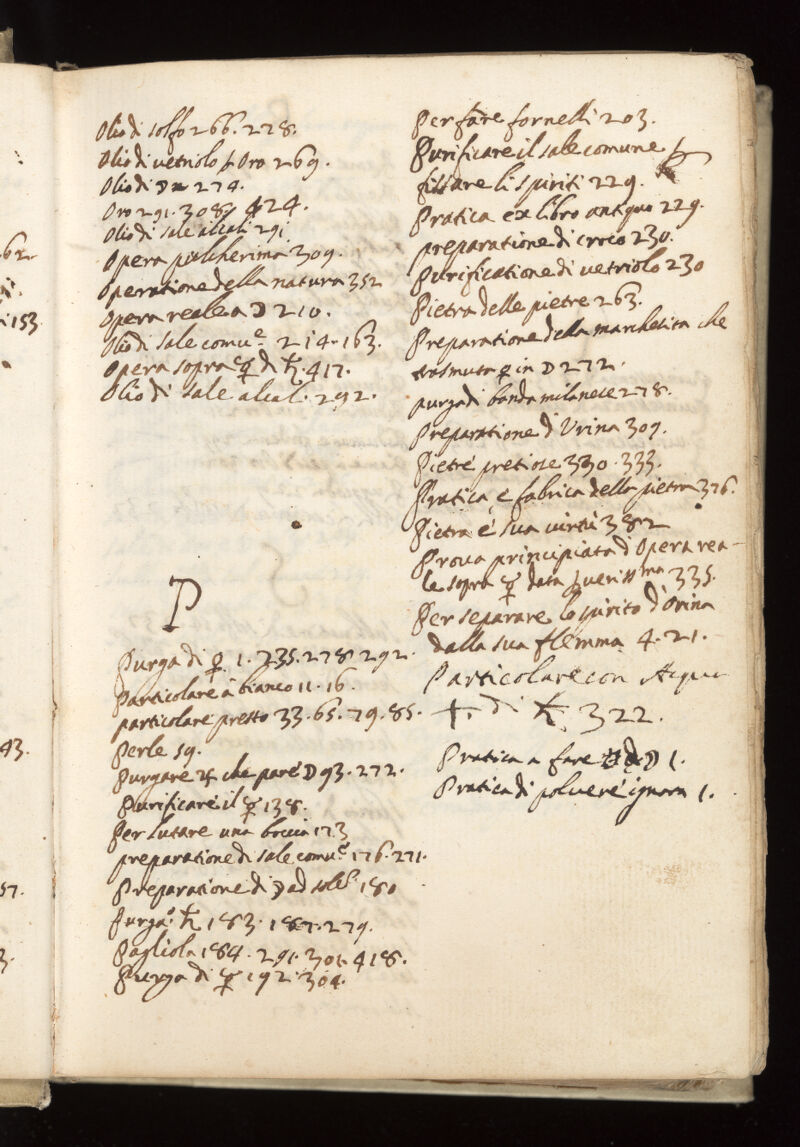 Olio di solfo 266. 278.
Olio di vetriolo p Oro 269.
Olio di ☽ 274.
Oro 291. 308. 424.
Olio di sale alcali 291
Opera pulcherima 309.
Operatione della natura 352
Opera reale a ☽ 210.
Olio di sale comu.e 214. 163.
Opera sopra ☿ di ♄. 417.
Olio di sale alcal. 292.
P
Purga di ☿ 1. 235. 278. 292.
Particolare à bianco 11. 16.
particolare presto 33. 65. 79. 85.
Perle 59.
Purgare ♃ che pare ☽ 93. 272.
Purificare il ☿ 138.
Per lutare una boccia 173
preparatione di sale comu.e 176. 271.
Preparatione di ☽ ad sole 180
Purga ♄ 183. 187. 279.
Pagliola 184. 291. 301. 418.
Purga di ☿ 192. 304.
Per fare fornelli 203.
Purificare il sale comune p
fissare li spiriti 229.
Pratica ex libro antiquo 229.
preparatione di croco 230.
Purificatione di vetriolo 230
Pietra delle pietre 263.
Preparatione della marchesita che
trasmuta ☿ in ☽ 272.
purga di banda milanese 278.
Preparatione d'Urina 309.
Pietre pretiose 330. 333.
Pratica, e fabrica della pietra 376.
Pietra e sua virtù 382
Prova principiata d'Opera rea-
le sopra ☿ data p veriss.ma 335.
Per separare lo spirito d'Orina
dalla sua flemma 4. 21.
Particolare con Acqua
+. di ♄ 322.
Pratica a fare ☽ 1.
Pratica di polvere ignara 1.